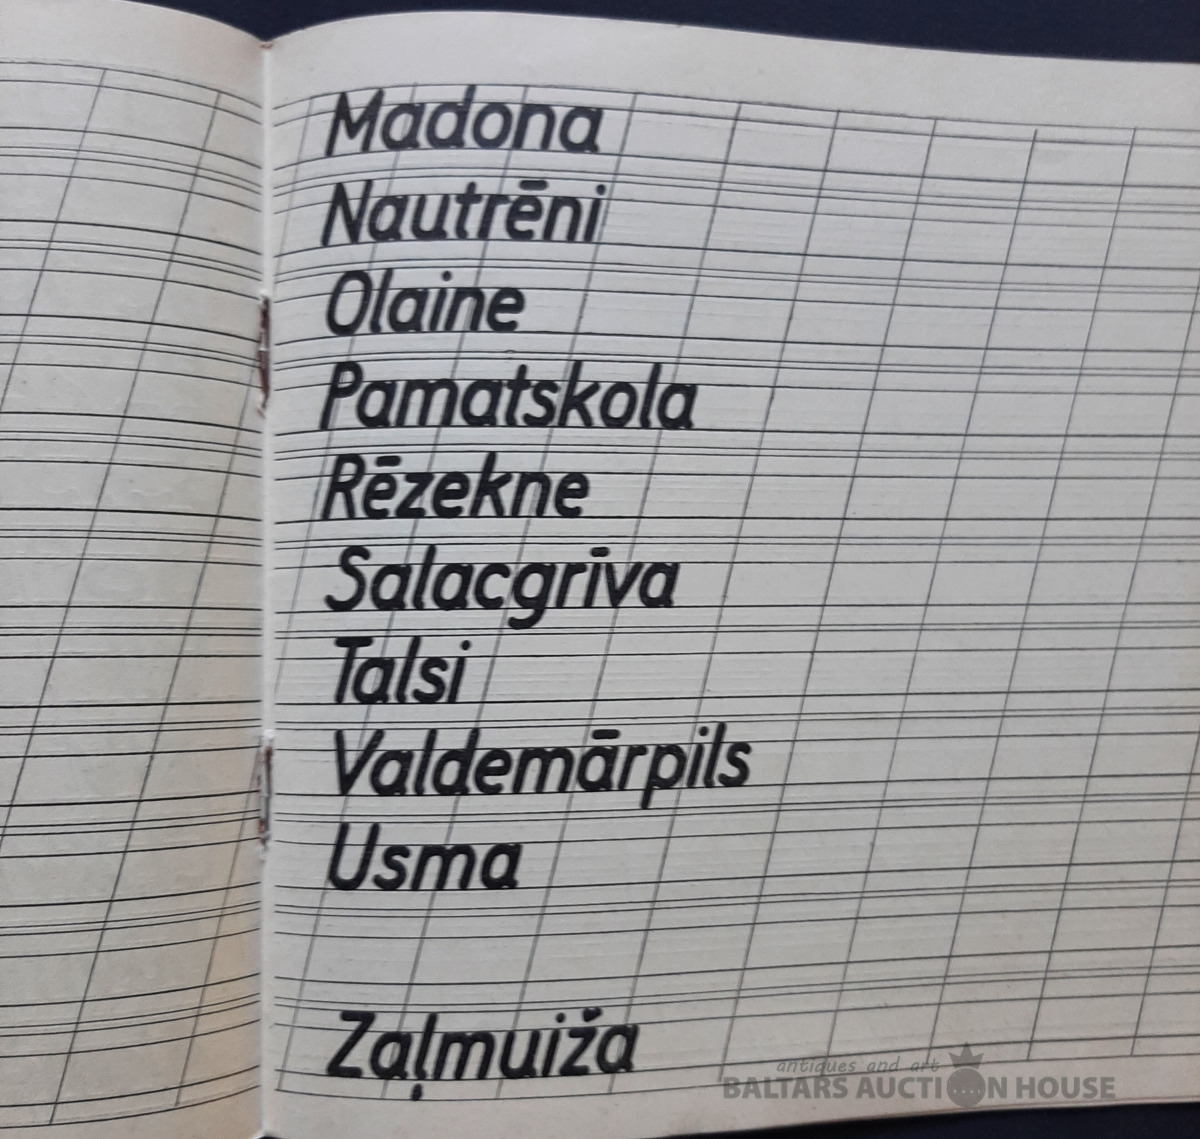 Madona
Nautrēni
Olaine
Pamatskola
Rēzekne
Salacgrīva
Talsi
Valdemārpils
Usma
Zaļmuiža
antiques and art
BALTARS AUCTION HOUSE